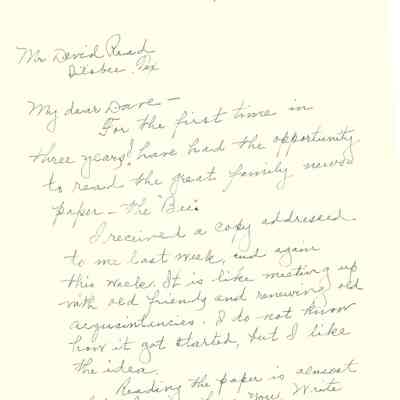 Mr David Read
Ditobee, Tex
My dear Dave —
For the first time in
three years I have had the opportunity
to read the great family news
paper — The "Bee"
I received a copy addressed
to me last week, and again
this week. It is like meeting up
with old friends and renewing old
acquaintencies. I do not know
how it got started, but I like
the idea.
Reading the paper is almost
you. Write